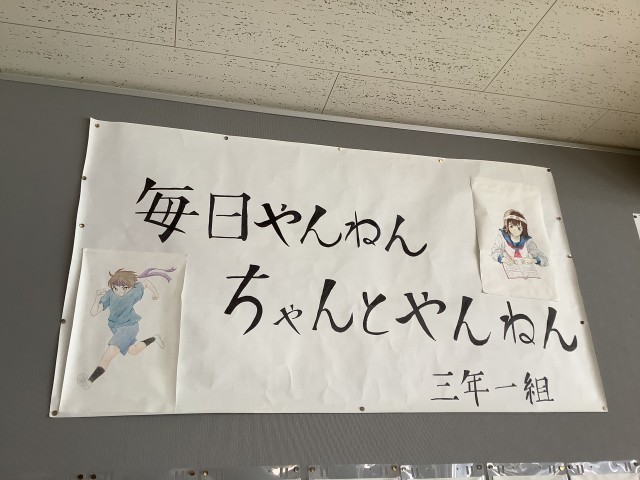 毎日やんねん
ちゃんとやんねん
三年一組